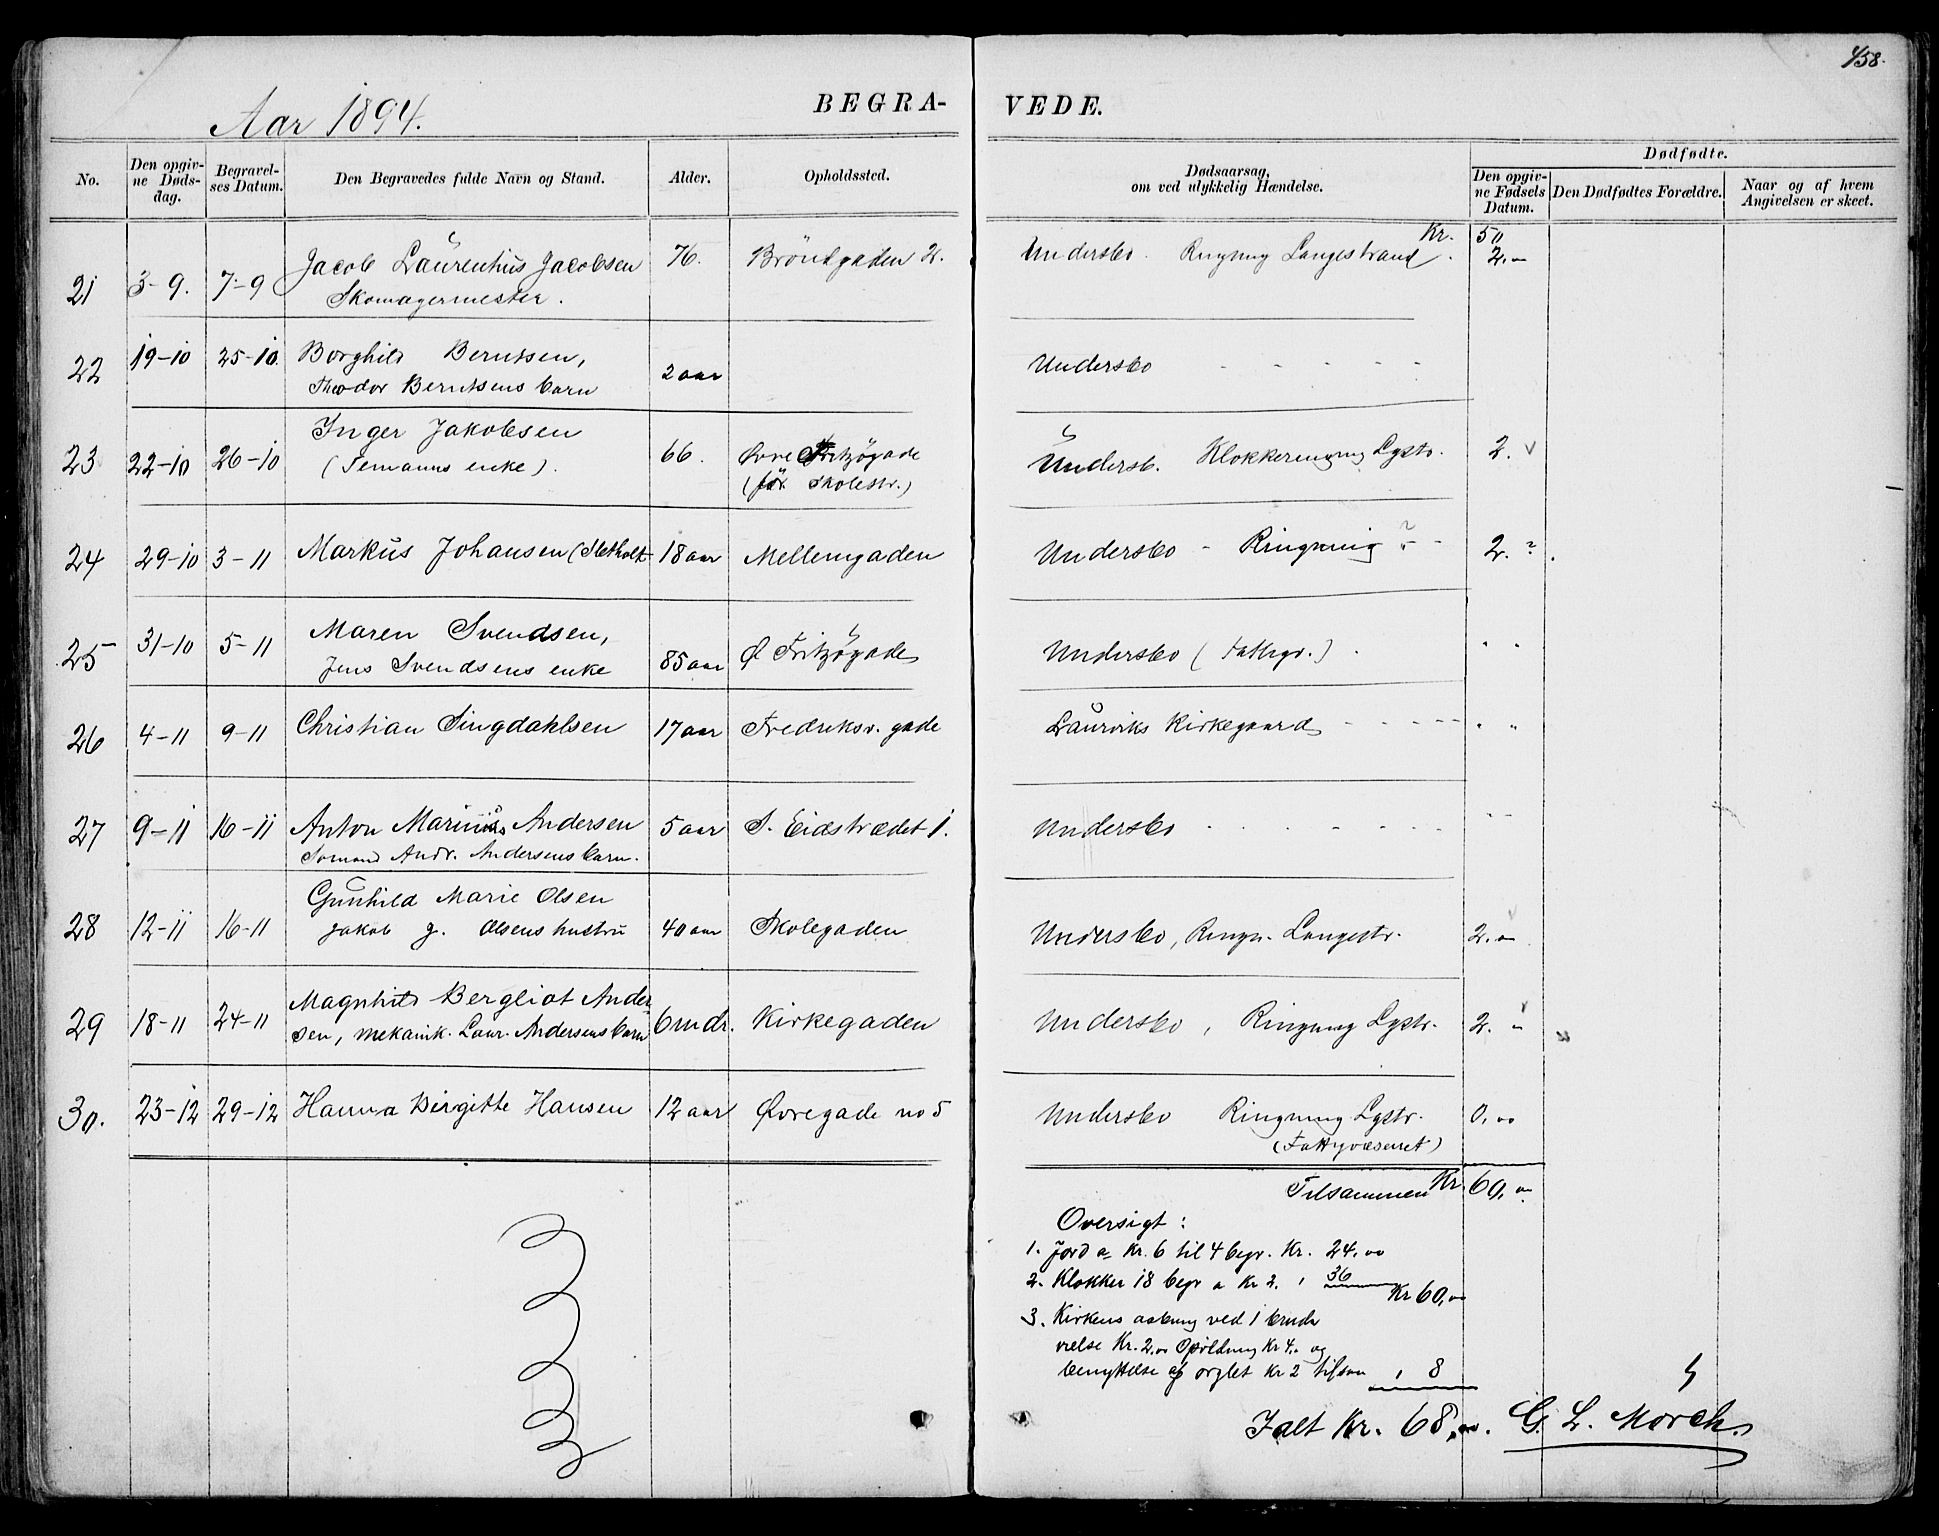 458.
Aar 1894.
BEGRA-
VEDE.
No.
Den opgiv-
ne Døds-
dag.
Begravel-
ses Datum.
Den Begravedes fulde Navn og Stand.
Alder.
Opholdssted.
Dødsaarsag,
om ved ulykkelig Hændelse.
Dødfødte.
Den opgiv-
ne Fødsels
Datum.
Den Dødfødtes Forældre.
Naar og af hvem
Angivelsen er skeet.
Kr. 50
21 3-9. 7-9 Jacob Laurentius Jacobsen 76. Bröndgaden 2. Undersbo. Ringning Langestrand. 2.
Skomagermester.
22 19-10 25-10. Borghild Berntsen, 2 aar Undersbo - - - -
Theodor Berntsens barn
23 22-10 26-10 Inger Jakobsen 66. Øvre Fritzögade Undersb. Klokkeringning Lgstr. 2.
(Semanns enke). (för Skolestr.)
24 29-10 3-11 Markus Johansen (Stetholt 18 aar Mellemgaden Undersbo - Ringning ? - 2. ?
25 31-10 5-11 Maren Svendsen, 85 aar Ø Fritzögade Undersbo (Fattigv.). " "
Jens Svendsens enke
26 4-11 9-11 Christian Singdahlsen 17 aar Fredriksv. gade Laurviks Kirkegaard - - - - - " "
27 9-11 16-11 Anton Marinius Andersen 5 aar S. Eidstrædet 1. Undersbo - - - - - - -
Sømand Andr. Andersens barn.
28 12-11 16-11 Gunhild Marie Olsen 40 aar Skolegaden Undersbo, Ringn. Langestr. 2.
Jakob J. Olsens hustru
29 18-11 24-11 Magnhild Bergliot Ander 6 mdr. Kirkegaden Undersbo, Ringning Lgstr. 2. "
sen, mekanik. Laur. Andersens barn
30. 23-12 29-12 Hanna Birgitte Hansen 12 aar Øvregade no 5 Undersbo Ringning Lgstr. 0,00
(Fattigvæsenet)
Tilsammen Kr. 60,00
Oversigt:
1. Jord a Kr. 6 til 4 begr. Kr. 24,00
2. Klokker 18 begr a Kr 2. " 36
Kr 60,00
3. Kirkens aabning ved 1 brude
vielse Kr. 2,00 Opvarmning Kr 4,- og
benyttelse af orglet Kr 2 tilsam " 8
Ialt Kr. 68,00. G. L. Mörch.